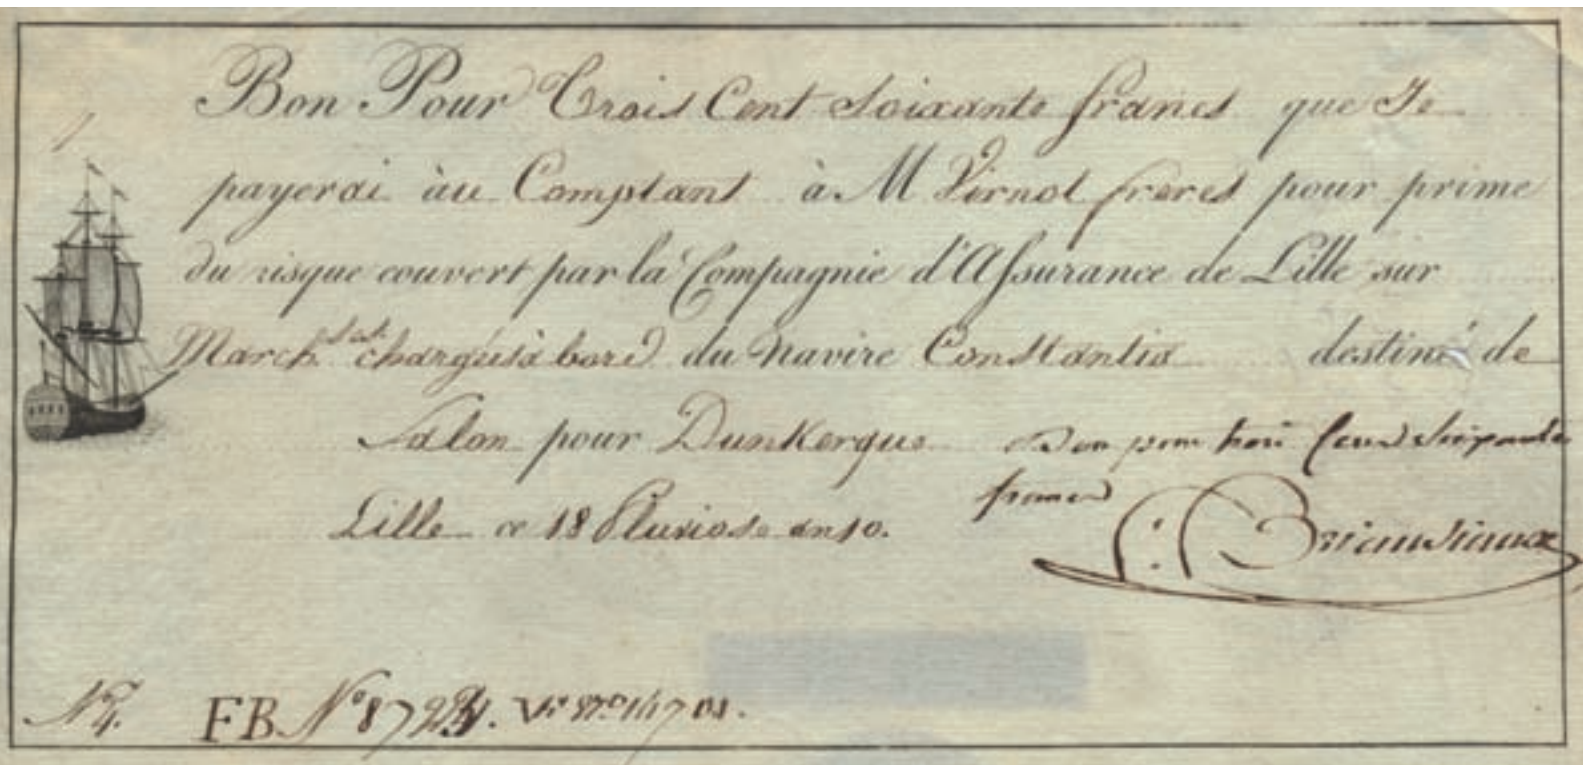 Bon Pour Trois Cent Soixante francs que Je
payerai àu Comptant à M Vernol freres pour prime
du risque couvert par la Compagnie d'Assurance de Lille sur
March.ses chargés à bord du Navire Constantia destiné de
Salon pour Dunkerque
Bon pour trois Cent Soixante
francs
Lille ce 18 Pluviose an 10.
Briansiaux
N° 4. FB. N°